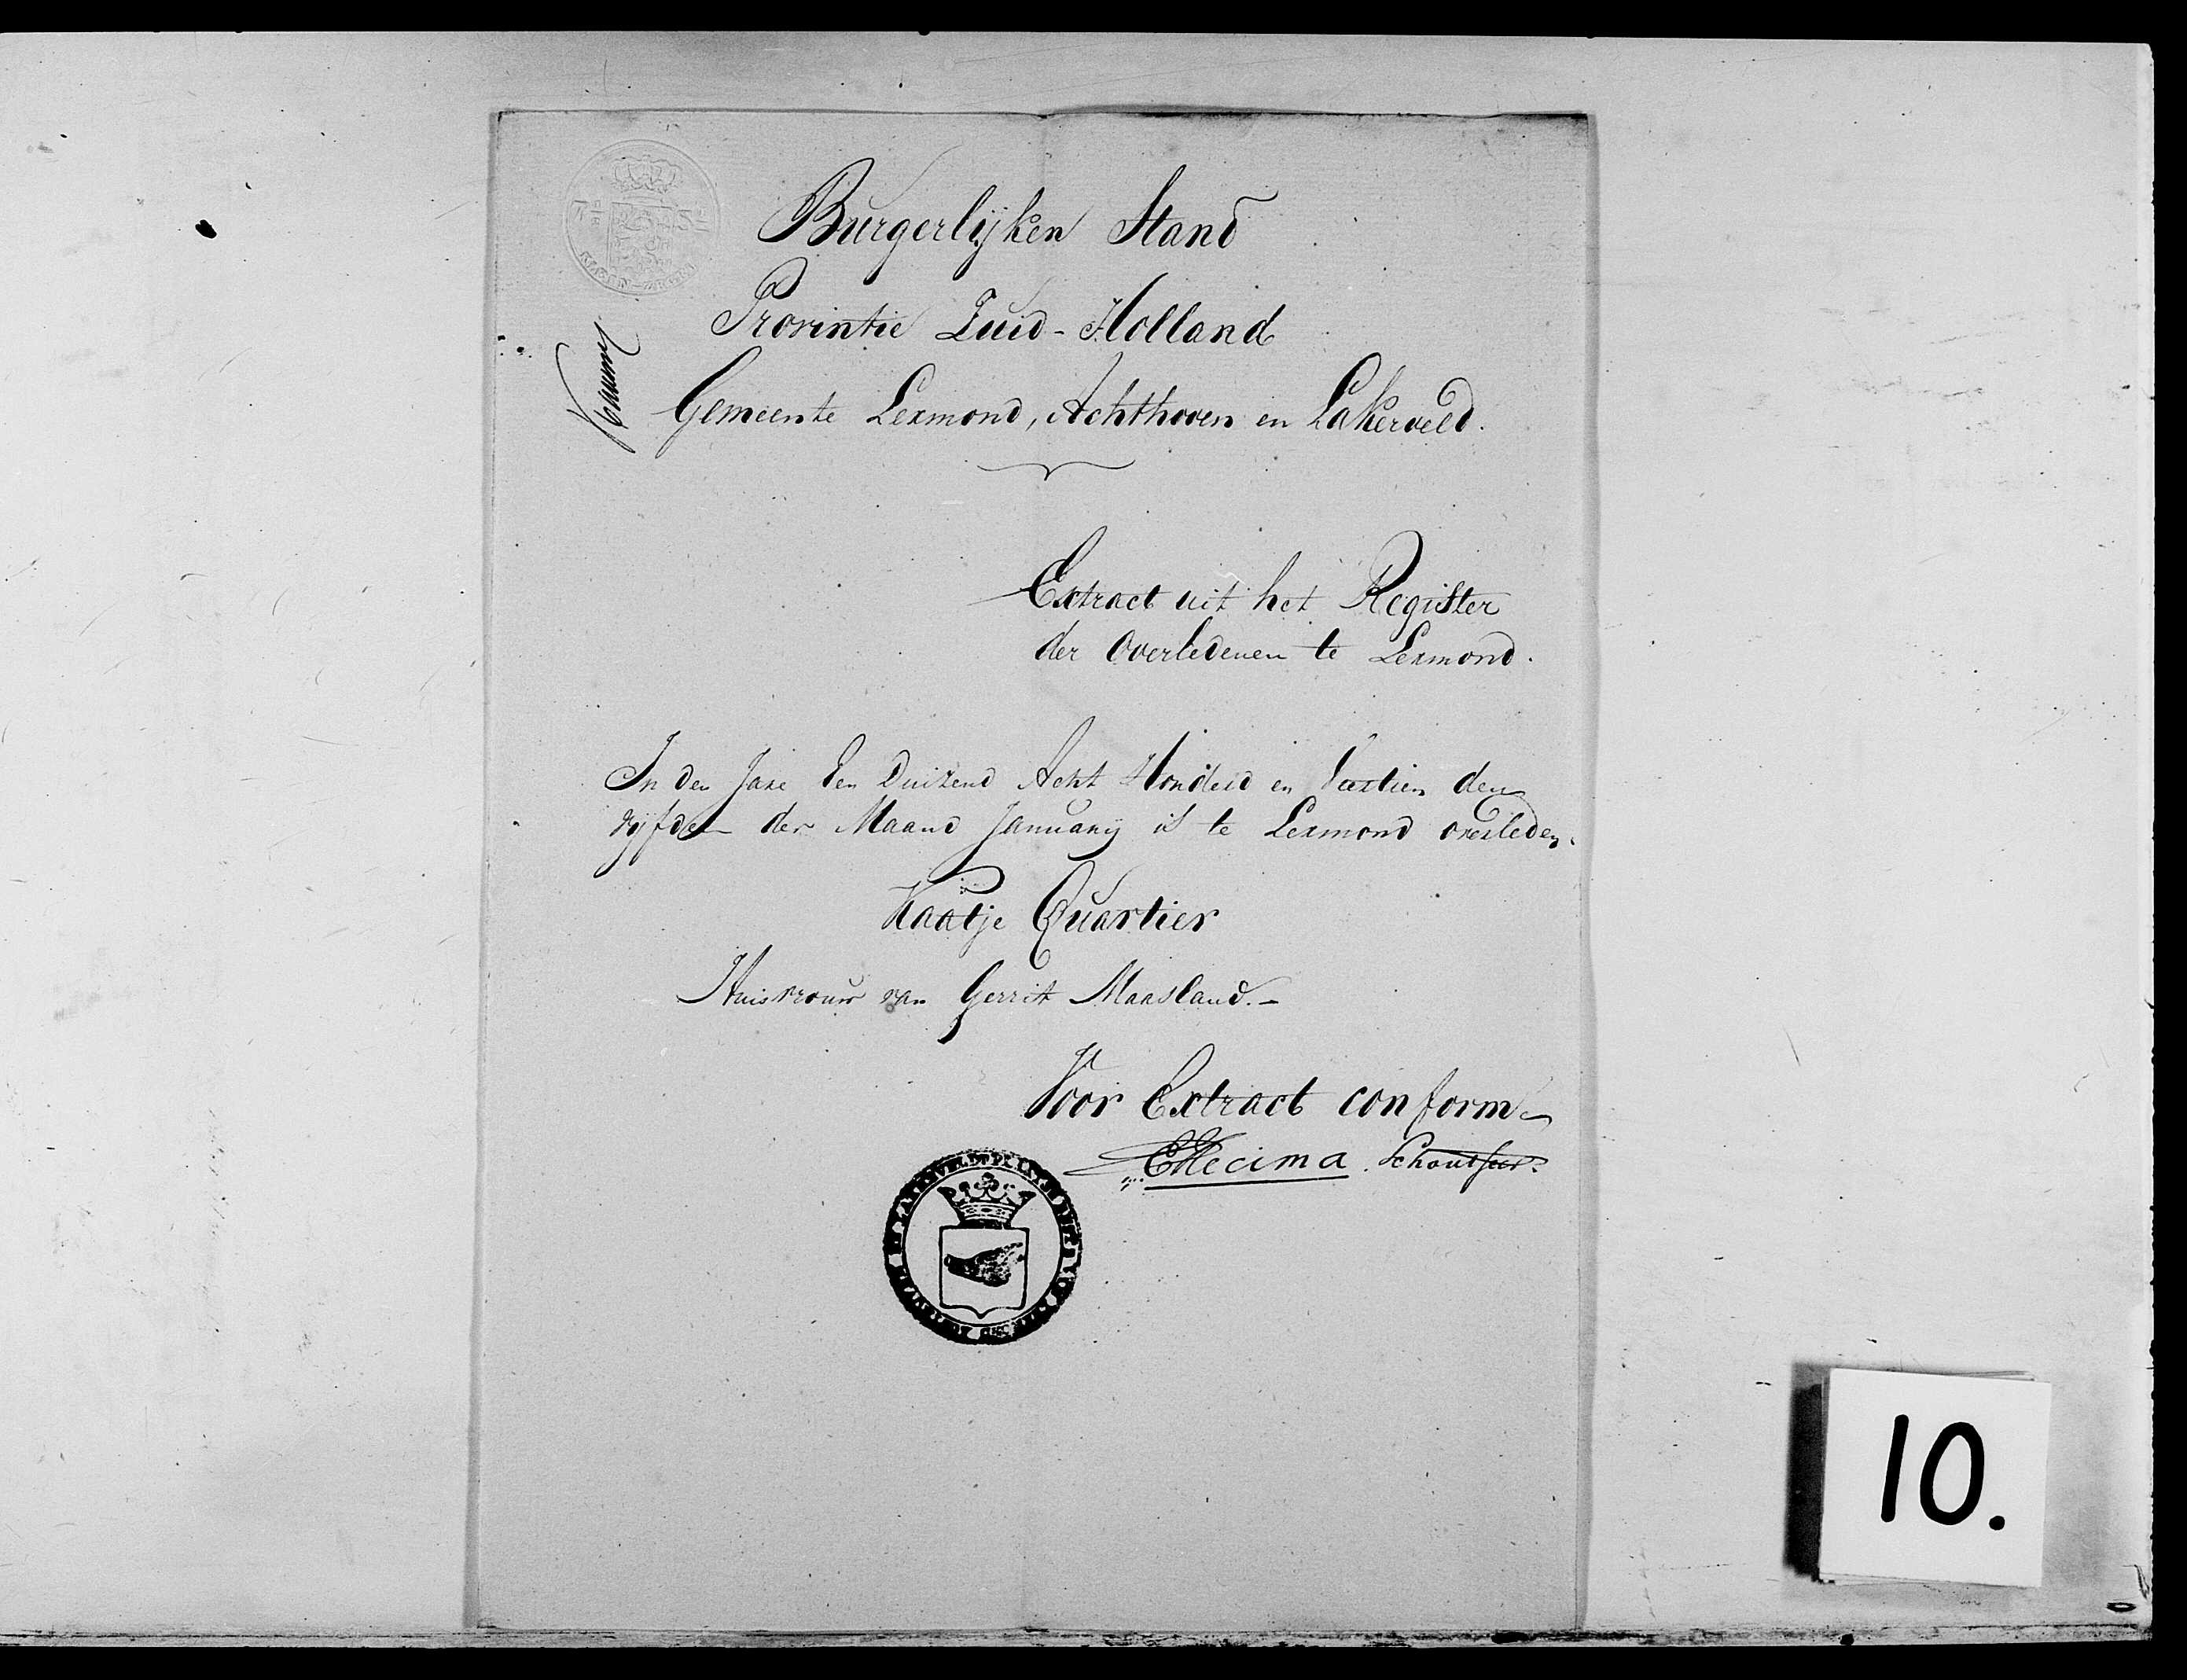 Burgerlijken Stand
Provintie Zuid-Holland
Gemeente Lexmond, Achthoven en Lakerveld.
Extract uit het Register
der Overledenen te Lexmond.
In den Jare Een Duizend Acht Honderd en Veertien den
vijfden der Maand January is te Lexmond overleden.
Kaatje Quartier
Huisvrouw van Gerrit Maasland.-
Voor Extract conform
Mecima. Schout
KLEIN-ZEGEL
10.